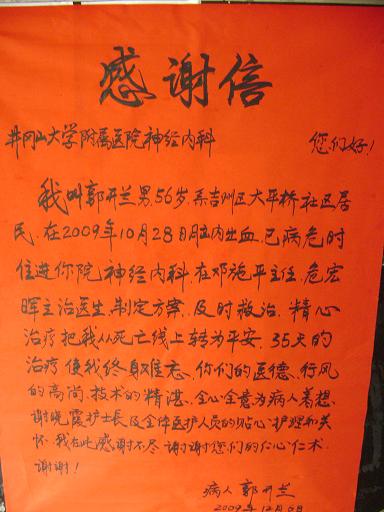 感谢信
井冈山大学附属医院神经内科 您们好!
我叫郭开兰男,56岁,系吉州区大平桥社区居
民,在2009年10月28日脑内出血,已病危时
住进你院神经内科,在邓施平主任,危宏
晖主治医生,制定方案,及时救治,精心
治疗把我从死亡线上转为平安,35天的
治疗使我终身难忘,你们的医德,行风
的高尚,技术的精湛,全心全意为病人着想,
谢晓霞护士长及全体医护人员的贴心护理和关
怀,我在此感谢不尽谢谢您们的仁心仁术.
谢谢!
病人 郭开兰
2009年12月